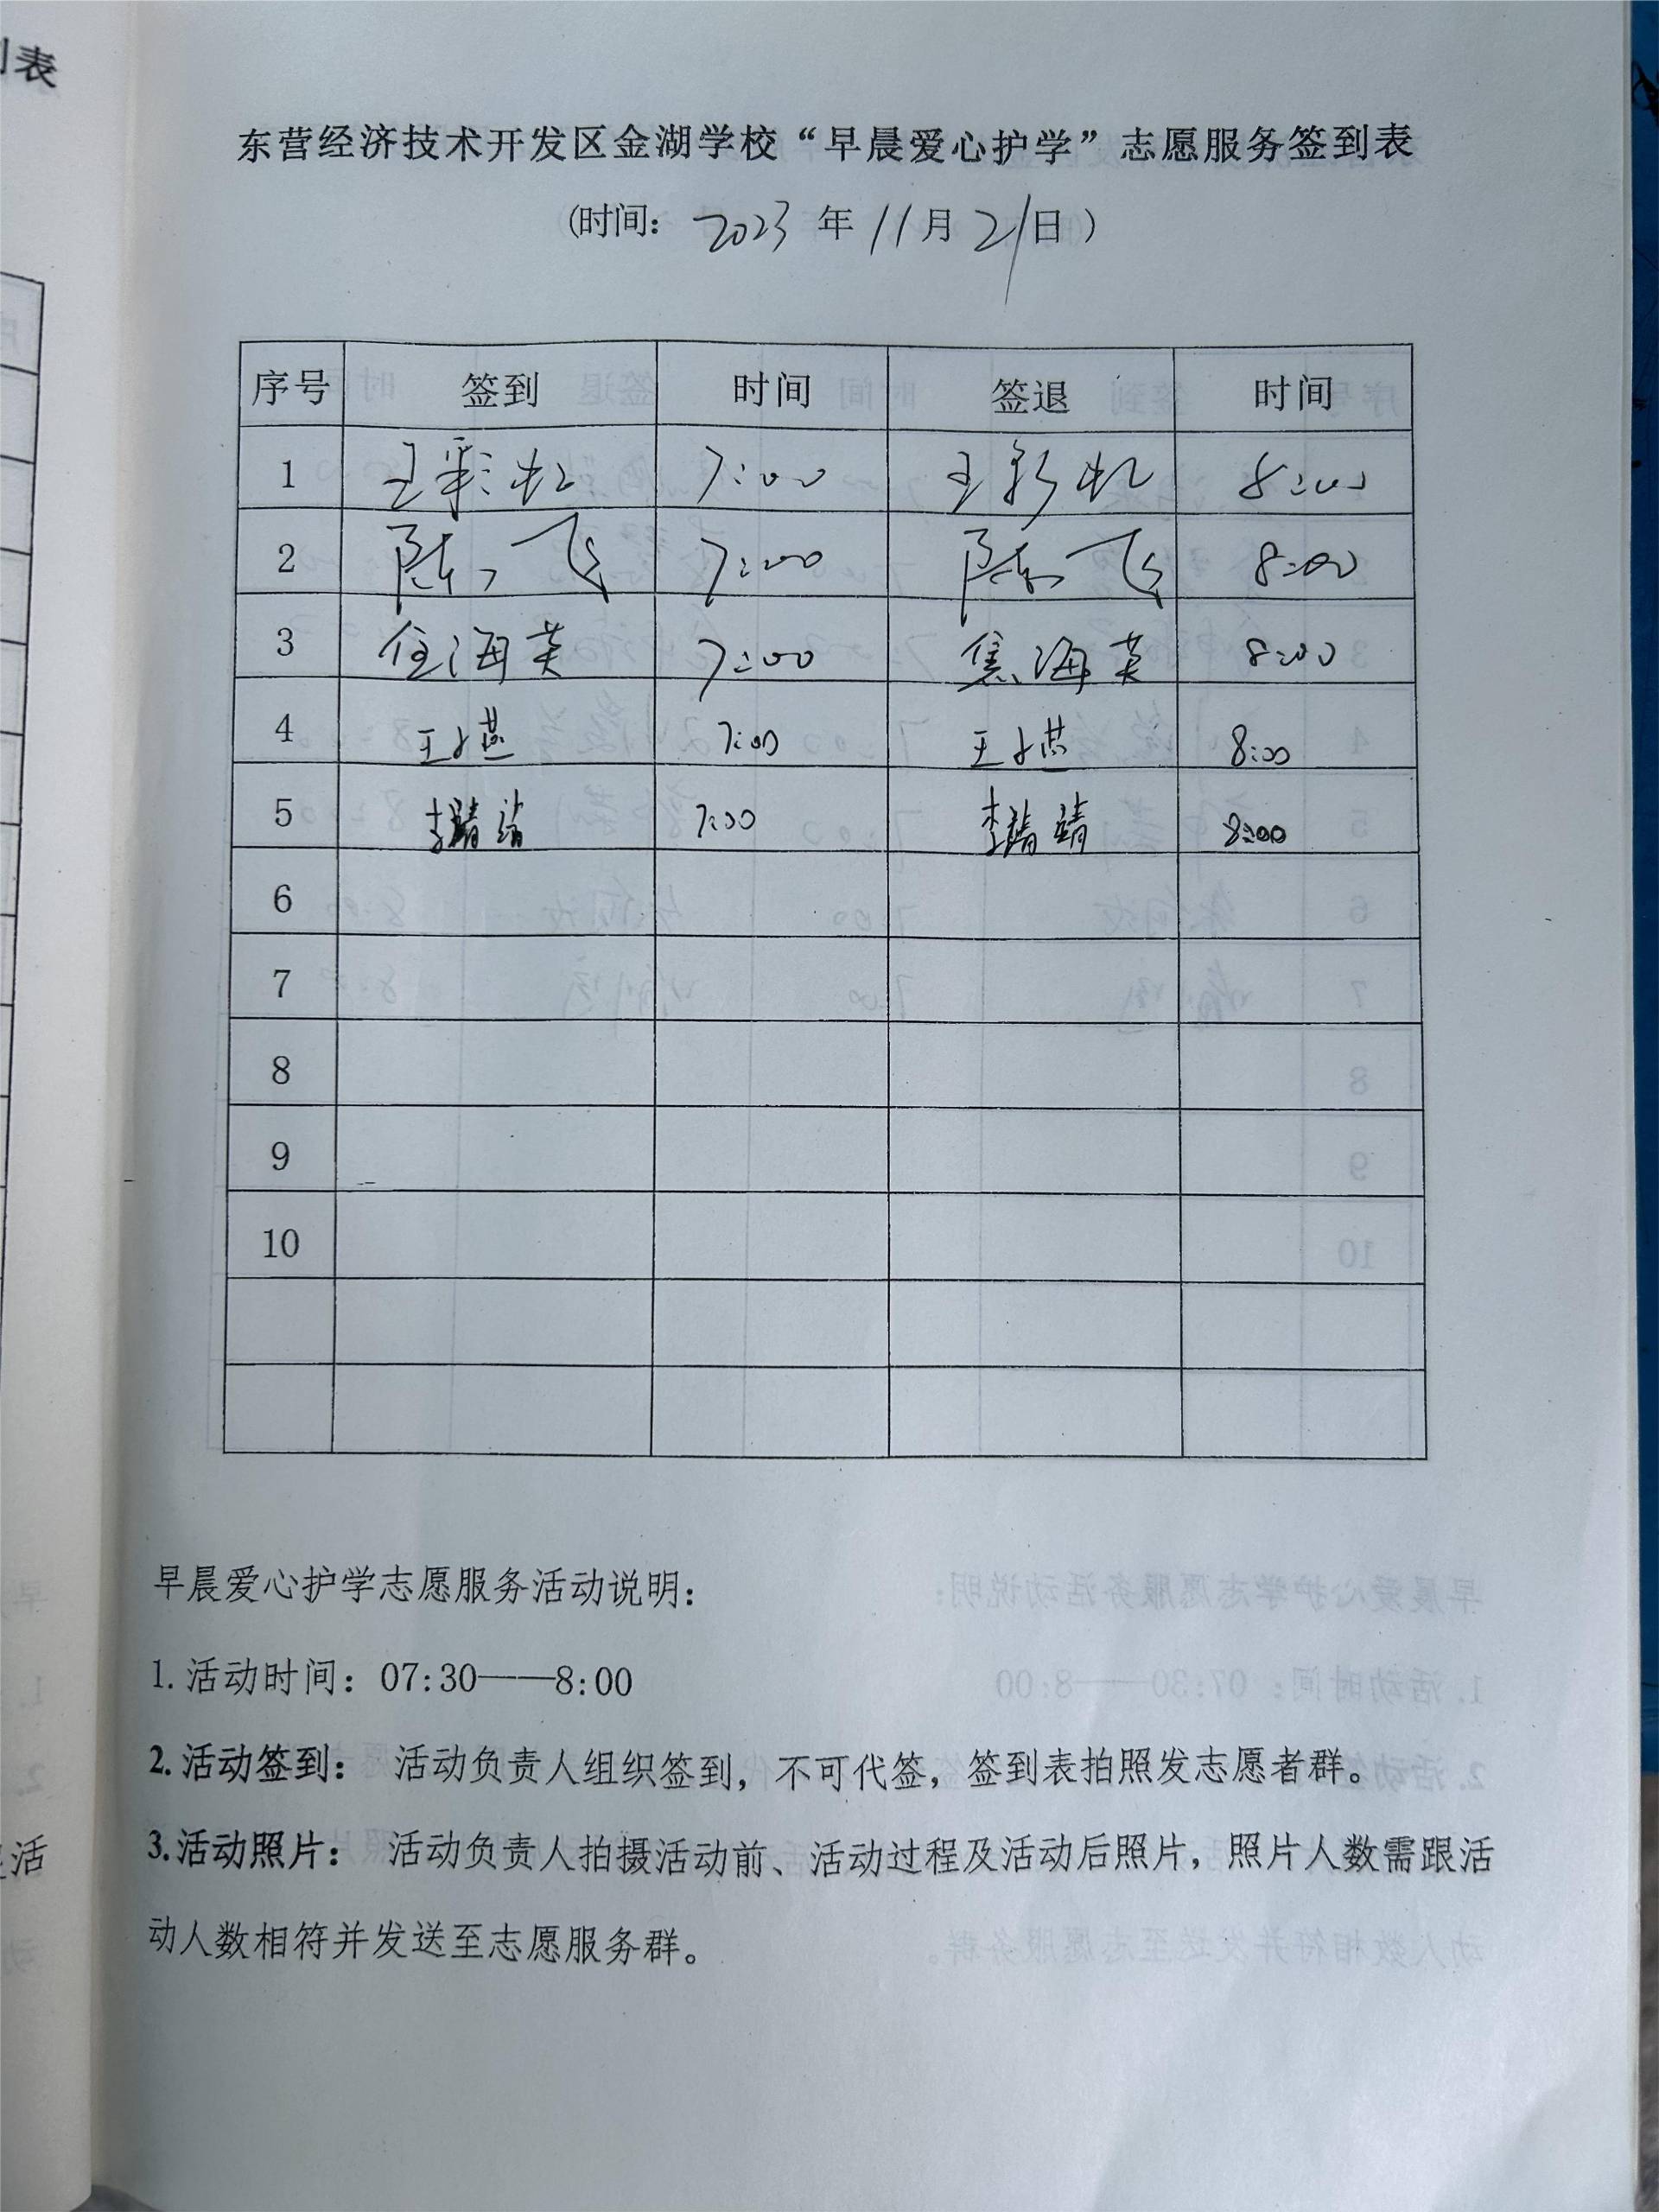 东营经济技术开发区金湖学校“早晨爱心护学”志愿服务签到表
(时间：2023年11月21日）
序号 签到 时间 签退 时间
1 王彩虹 7:00 王彩虹 8:00
2 陈飞 7:00 陈飞 8:00
3 焦海英 7:00 焦海英 8:00
4 王小燕 7:00 王小燕 8:00
5 7:00 8:00
6
7
8
9
10
早晨爱心护学志愿服务活动说明：
1.活动时间：07:30——8:00
2.活动签到： 活动负责人组织签到，不可代签，签到表拍照发志愿者群。
3.活动照片： 活动负责人拍摄活动前、活动过程及活动后照片，照片人数需跟活
动人数相符并发送至志愿服务群。